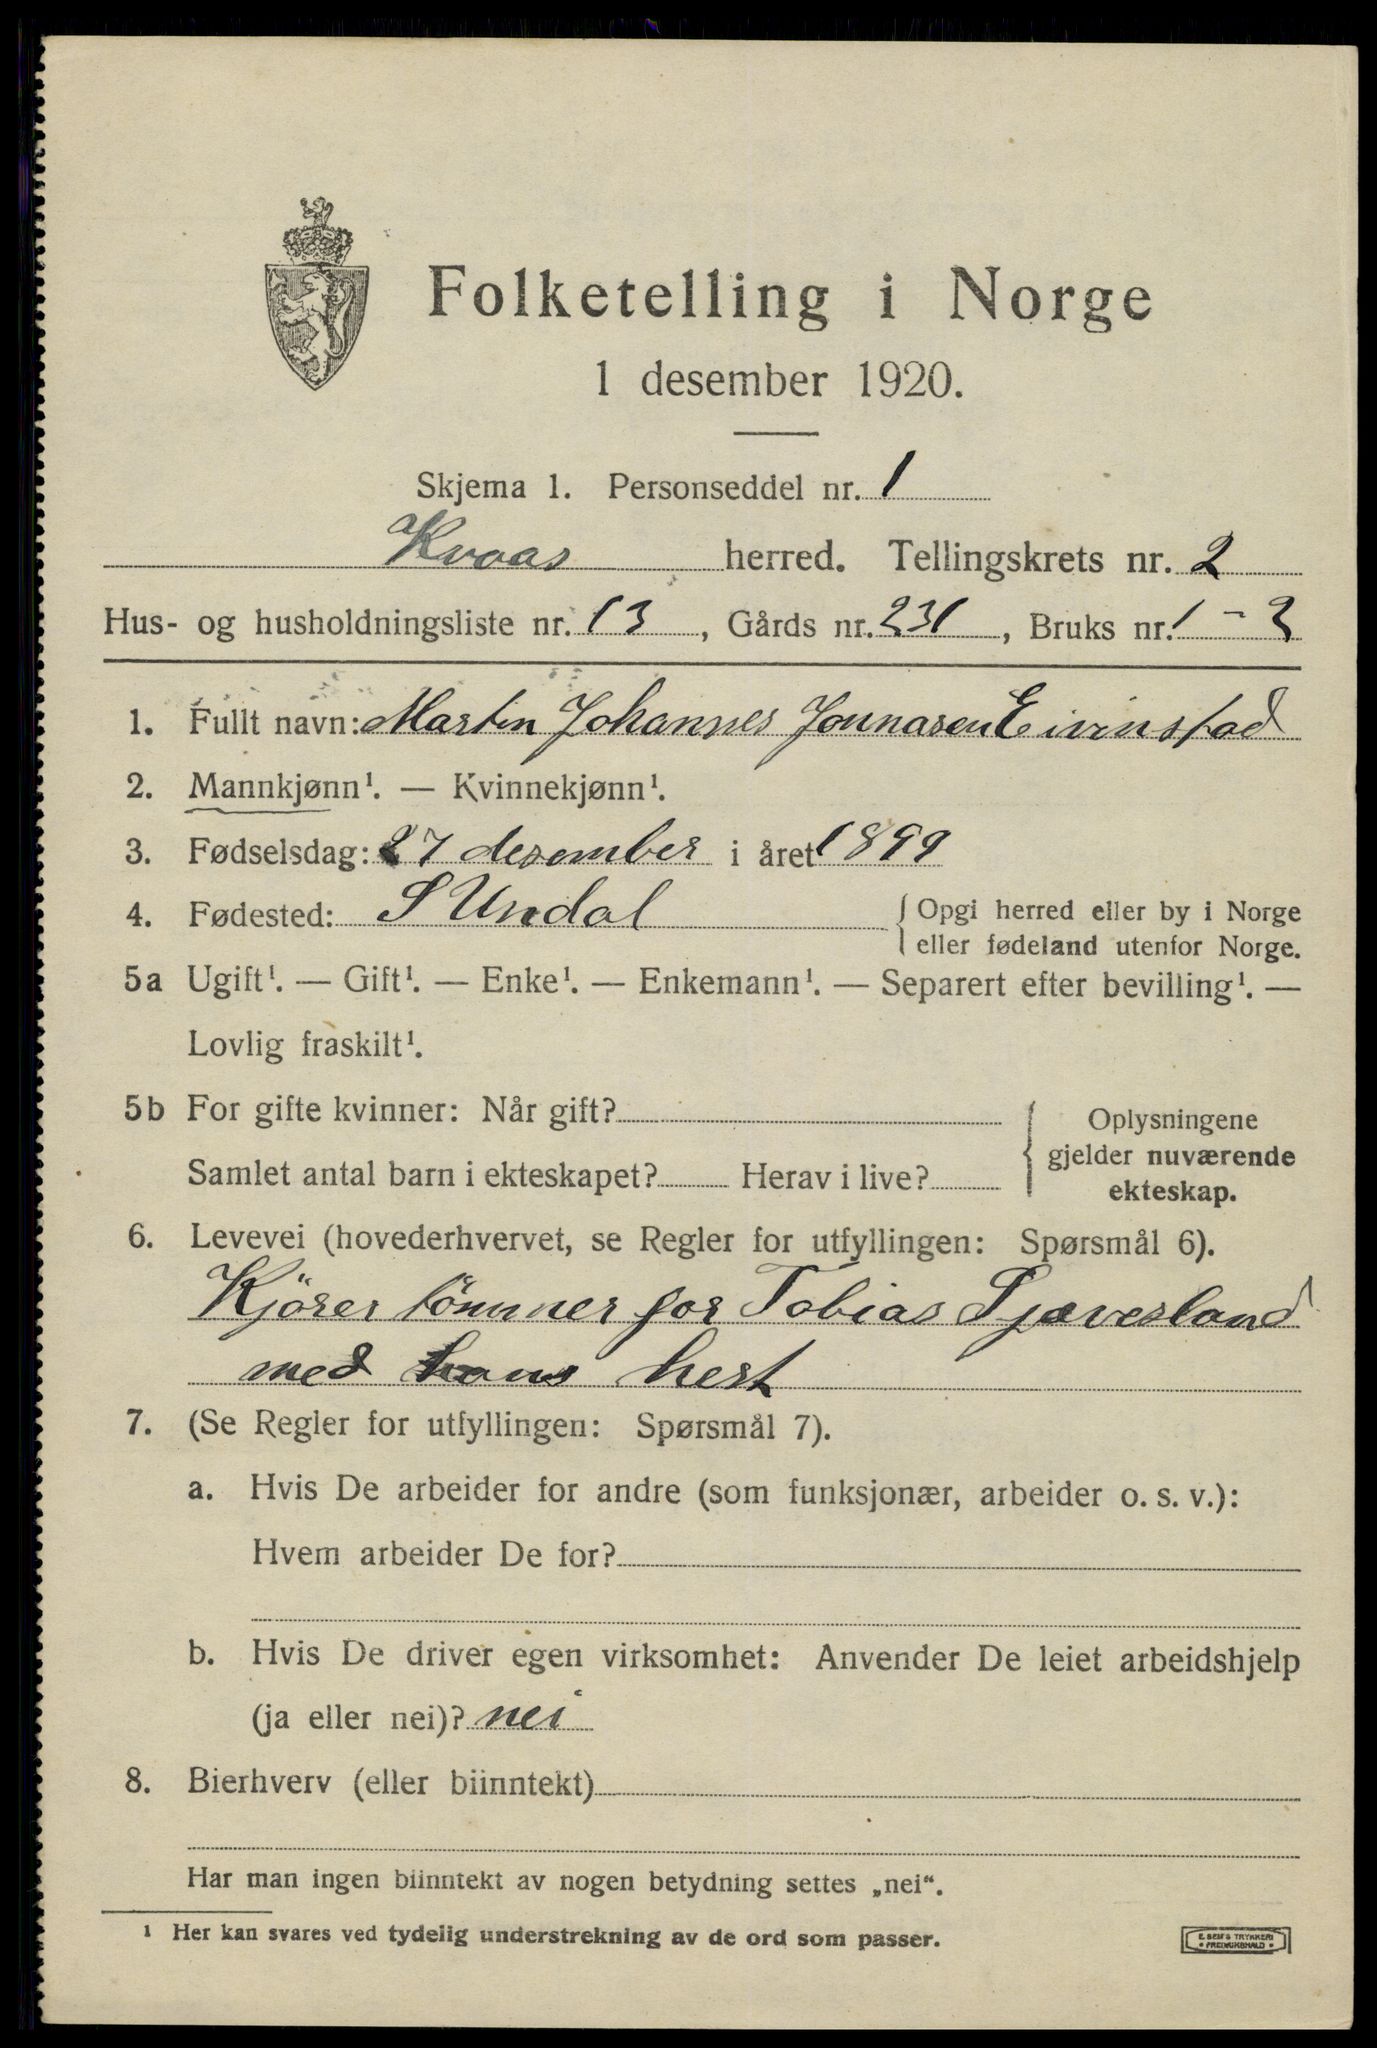 Folketelling i Norge
1 desember 1920.
Skjema 1. Personseddel nr. 1
Kvaas herred. Tellingskrets nr. 2
Hus- og husholdningsliste nr. 13, Gårds nr. 231, Bruks nr. 1-2
1. Fullt navn: Martin Johannes Jonnasen Eivinstad
2. Mannkjønn¹. — Kvinnekjønn¹.
3. Fødselsdag: 27 desember i året 1899
4. Fødested: S Undal { Opgi herred eller by i Norge
eller fødeland utenfor Norge.
5a Ugift¹. — Gift¹. — Enke¹. — Enkemann¹. — Separert efter bevilling¹. —
Lovlig fraskilt¹.
5b For gifte kvinner: Når gift?
Samlet antal barn i ekteskapet? Herav i live?
{ Oplysningene
gjelder nuværende
ekteskap.
6. Levevei (hovederhvervet, se Regler for utfyllingen: Spørsmål 6).
Kjörer tömmer for Tobias Tjævesland
med hans hest
7. (Se Regler for utfyllingen: Spørsmål 7).
a. Hvis De arbeider for andre (som funksjonær, arbeider o. s. v.):
Hvem arbeider De for?
b. Hvis De driver egen virksomhet: Anvender De leiet arbeidshjelp
(ja eller nei)? nei
8. Bierhverv (eller biinntekt)
Har man ingen biinntekt av nogen betydning settes „nei“.
¹ Her kan svares ved tydelig understrekning av de ord som passer.
E. SEM'S TRYKKERI
• FREDRIKSHALD •